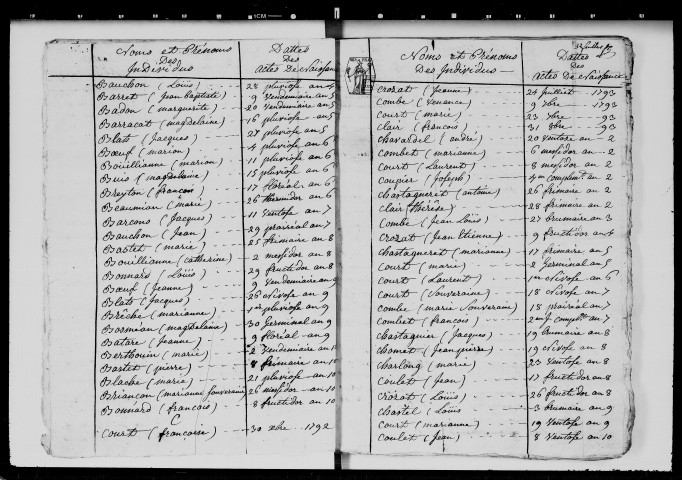 Noms et Prénoms
Des
Individus
Dattes
Des
Actes De Naissance
Bauchon (Loüis) 28 pluviose an 4
Barret (Jean Baptiste) 9 Vendemiaire an 5
Badon (marguerite) 20 Vendemiaire an 5
Barracat (magdelaine) 16 pluviose an 5
Blast (Jacques) 27 pluviose an 5
Bœuf (marion) 4 pluviose an 6
Bouillianne (marion) 11 pluviose an 6
Buis (magdelaine) 15 pluviose an 6
Breyton (françois) 17 floréal an 6
Beaumian (marie) 26 thermidor an 6
Barcons (Jacques) 11 Ventose an 7
Bauchon (Jean) 29 prairéal an 7
Bastet (marie) 25 frimaire an 8
Bouillianne (catherine) 2 messidor an 8
Bonnard (Loüis) 29 fructidor an 8
Bœuf (Jeanne) 9 Vendemiaire an 9
Blats (Jacques) 26 nivose an 9
Brêche (marianne) 1er pluviose an 9
Borméan (magdelaine) 30 Germinal an 9
Batare (Jeanne) 9 floréal an 9
Berthouin (marie) 2 Vendemiaire an 10
Bartet (pierre) 8 frimaire an 10
Blache (marie) 21 pluviose an 10
Briançon (marianne souveraine) 26 messidor an 10
Bonnard (francois) 8 fructidor an 10
C
Court (francoise) 30 xbre 1792
Noms et Prénoms
Des Individus
Dattes
Des
Actes De Naissance
Crozat (Jeanne) 29 Juillet 1793
Combe (Venance) 9 7bre 1793
Court (marie) 23 7bre 93
Clair (francois) 31 8bre 93
Chavardel (andré) 20 Ventose an 2
Combet (marianne) 6 messidor an 2
Court (Laurent) 8 messidor an 2
Coupier (Joseph) 4me complemt. an 2
Chastagneret (antoine) 26 frimaire an 2
Clair (thérèse) 28 frimaire an 2
Combe (Jean Loüis) 27 Brumaire an 3
Crozat (Jean Etienne) 9 fructidor an 4
Chastagneret (marianne) 17 frimaire an 5
Court (marie) 2 Germinal an 5
Court (Laurent) 1er nivose an 6
Court (Souveraine) 18 nivose an 7
Combe (marie Souveraine) 18 prairéal an 7
Combet (francois) 2me J. comple. an 7
Chastagnier (Jacques) 19 Brumaire an 8
Chomet (Jean pierre) 19 nivose an 8
Charlong (marie) 23 Ventose an 8
Coulet (Jean) 17 fructidor an 8
Crozat (Loüis) 26 fructidor an 8
Chastel (Loüis) 3 Brumaire an 9
Court (marianne) 19 Ventose an 9
Coulet (Jean) 8 Ventose an 10